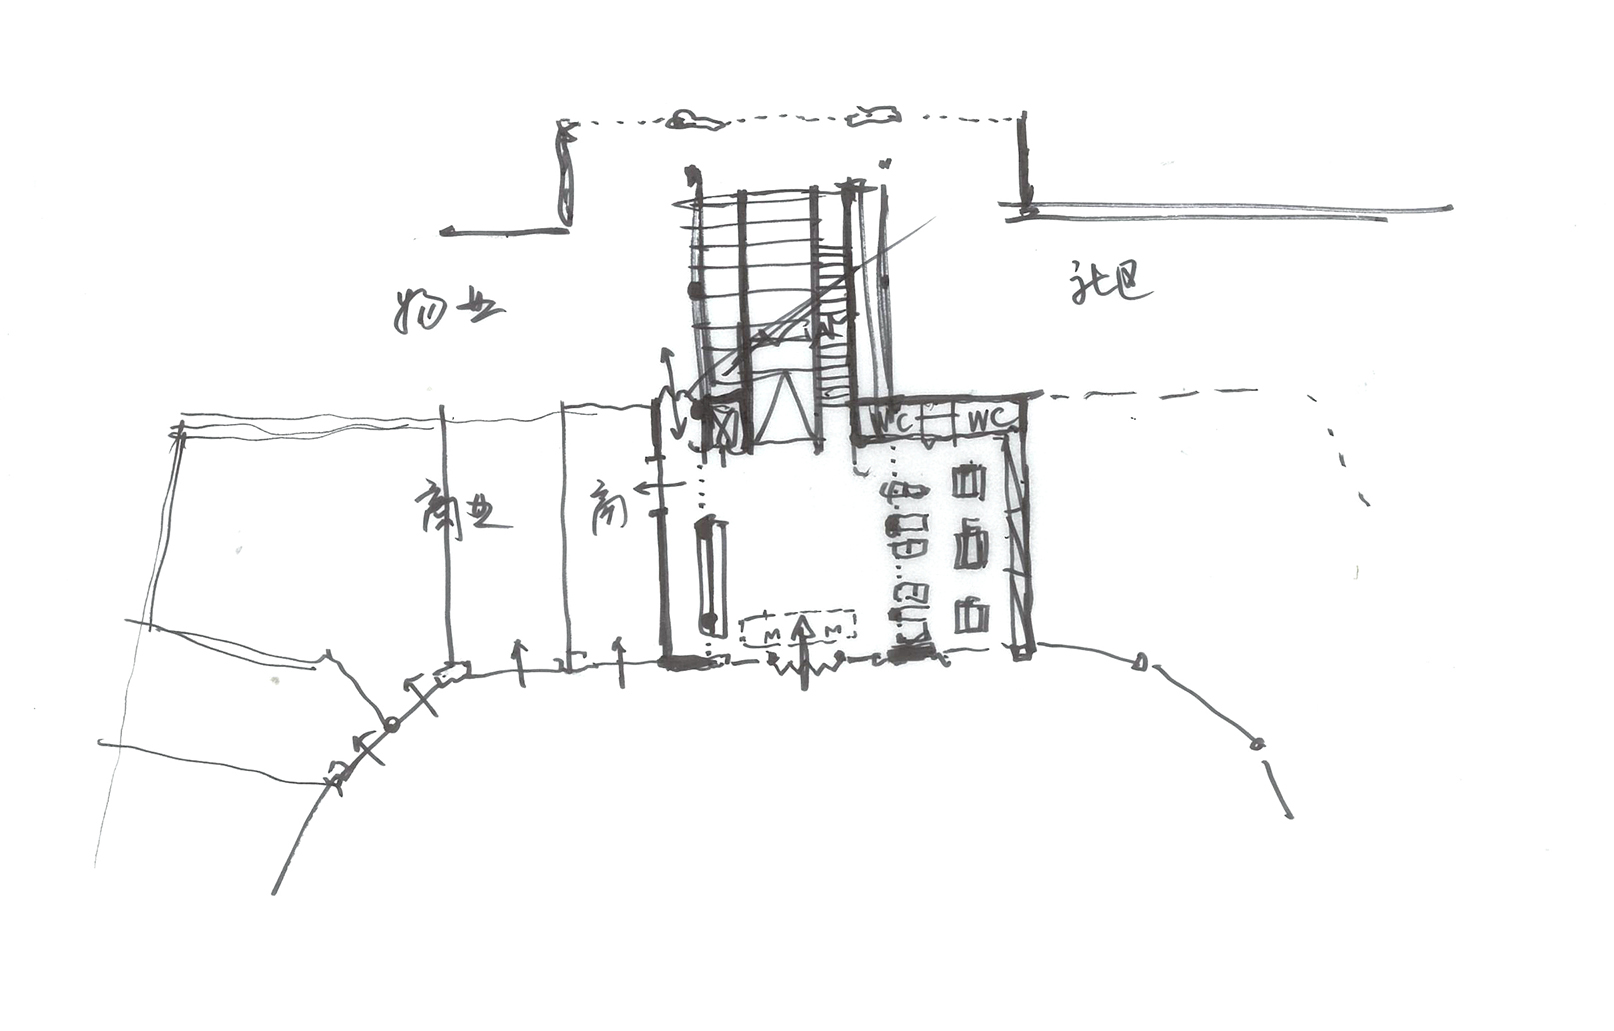 物业
社区
WC WC
商业
商
M M